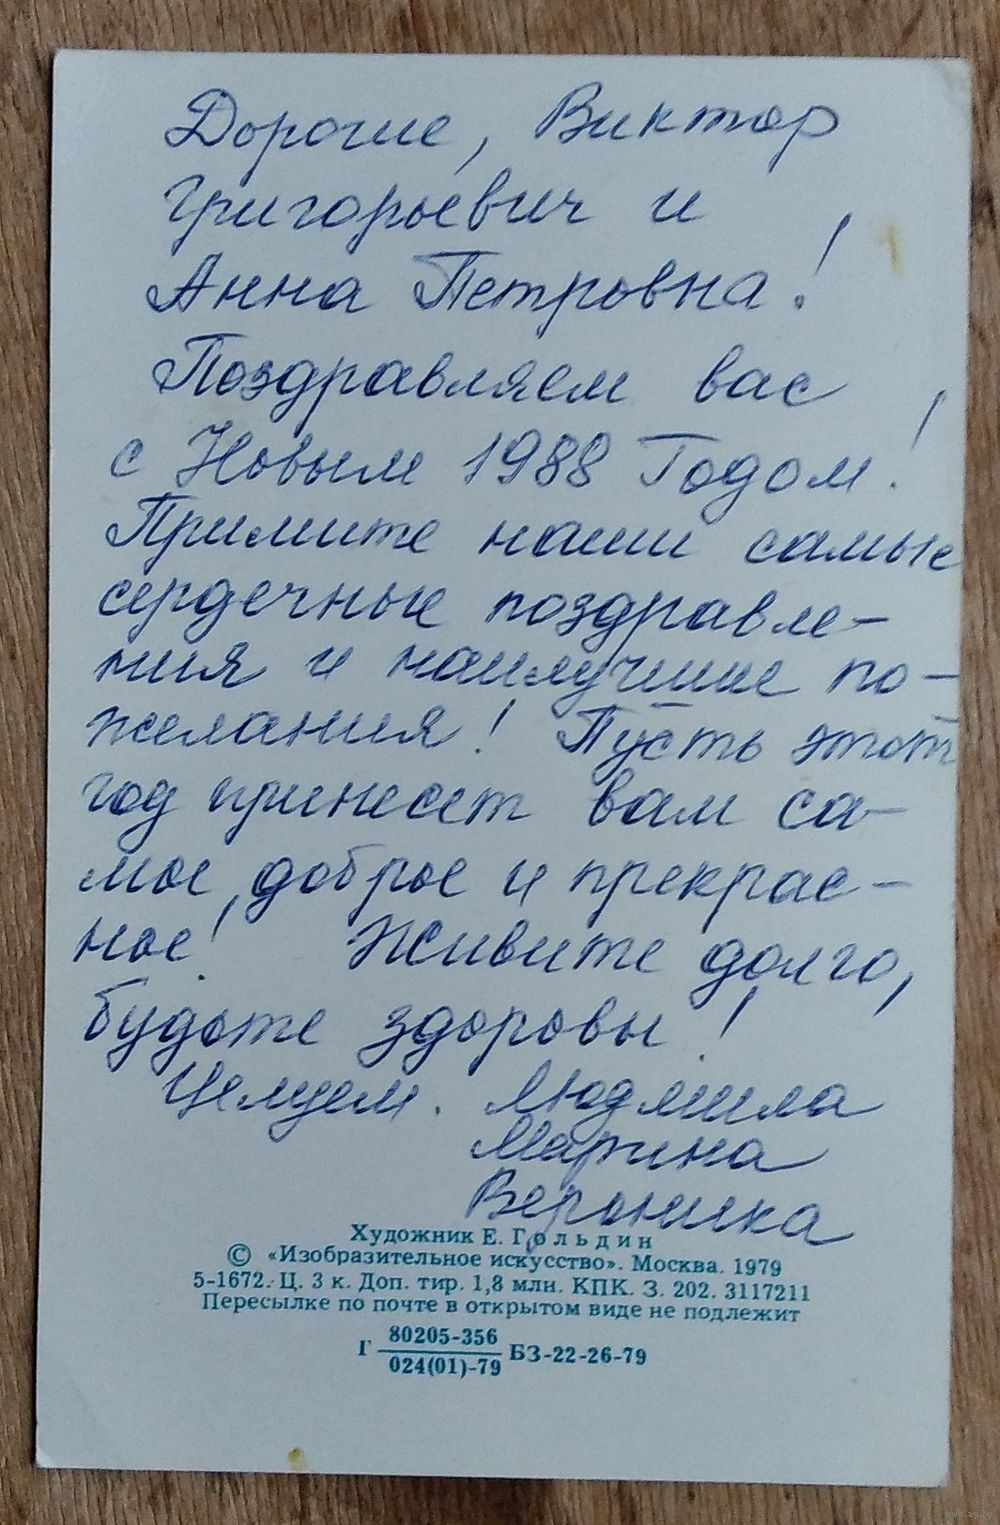 Дорогие, Виктор
Григорьевич и
Анна Петровна!
Поздравляем вас
с Новым 1988 Годом!
Примите наши самые
сердечные поздравле-
ния и наилучшие по-
желания! Пусть этот
год принесет вам са-
мое, доброе и прекрас-
ное! Живите долго,
будьте здоровы!
Целуем. Людмила
Марина
Вероника
Художник Е. Гольдин
© «Изобразительное искусство». Москва. 1979
5-1672. Ц. 3 к. Доп. тир. 1,8 млн. КПК. З. 202. 3117211
Пересылке по почте в открытом виде не подлежит
Г 80205-356
024(01)-79 БЗ-22-26-79
www.ay.by